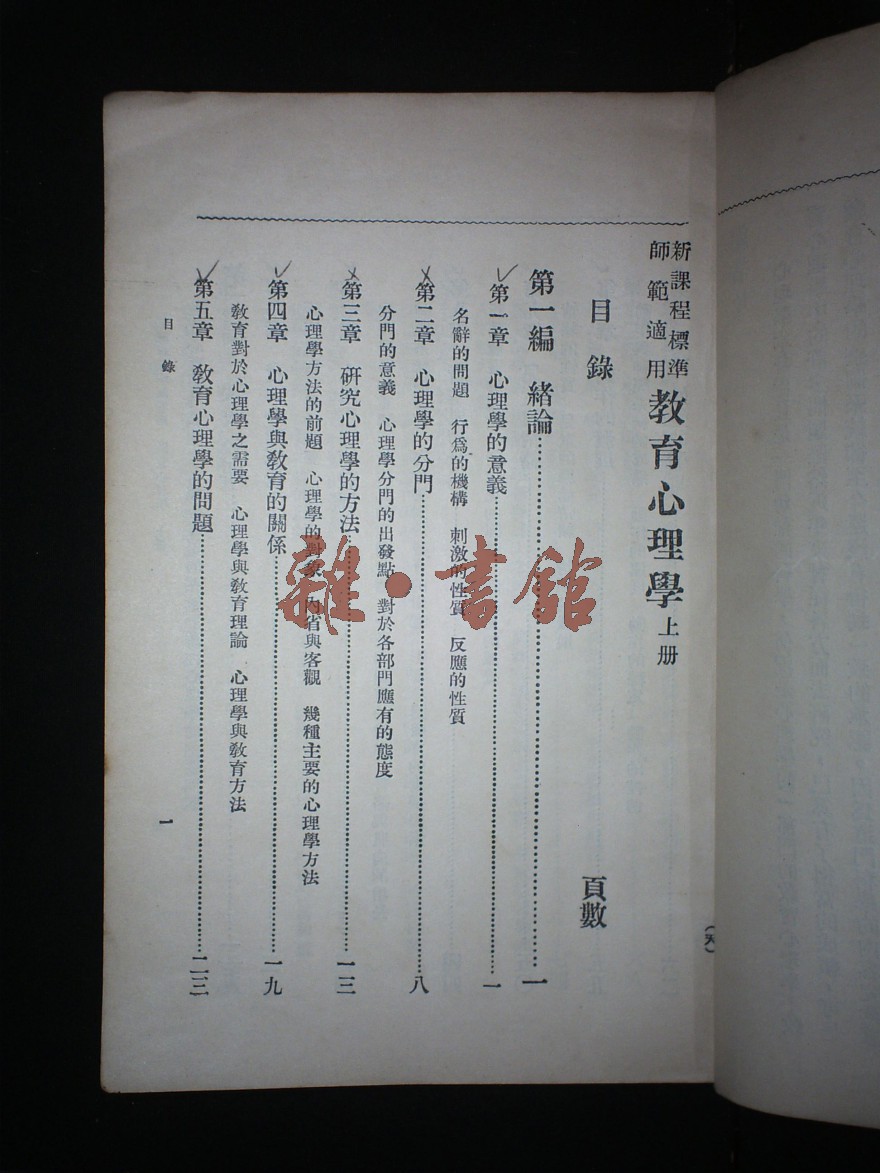 新課程標準
師範適用
教育心理學上册
目錄
頁數
第一編 緒論……一
第一章 心理學的意義……一
名辭的問題 行爲的機構 刺激的性質 反應的性質
第二章 心理學的分門……八
分門的意義 心理學分門的出發點 對於各部門應有的態度
第三章 研究心理學的方法……一三
心理學方法的前題 心理學的對象 內省與客觀 幾種主要的心理學方法
第四章 心理學與教育的關係……一九
教育對於心理學之需要 心理學與教育理論 心理學與教育方法
第五章 教育心理學的問題……二三
目錄
一
雜·書館